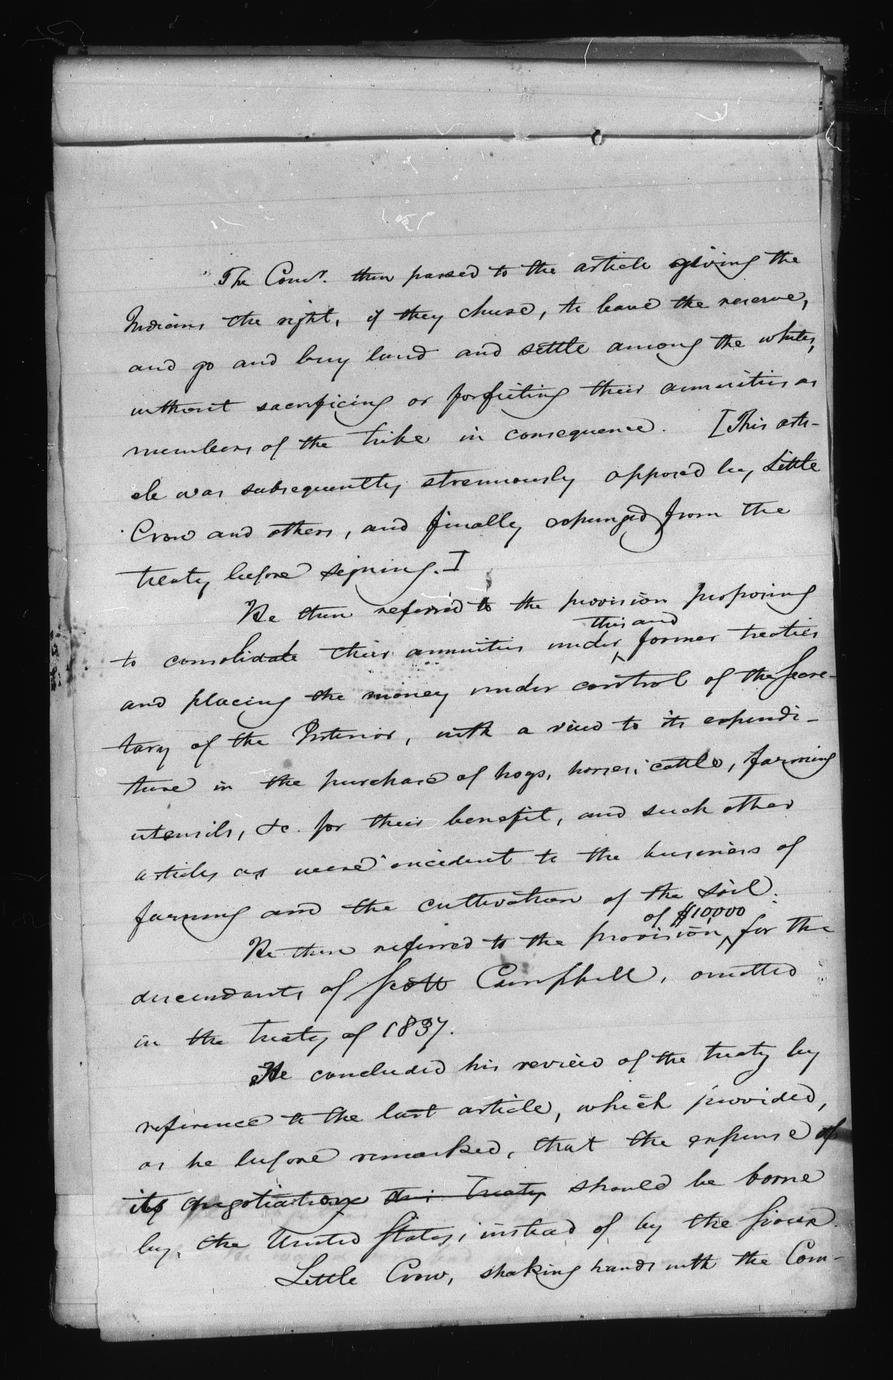 The Comr. then passed to the article giving the
Indians the right, if they chuse, to leave the reserve,
and go and buy land and settle among the whites,
without sacrificing or forfeiting their annuities as
members of the tribe in consequence. [This arti-
cle was subsequently strenuously opposed by Little
Crow and others, and finally expunged from the
treaty before signing.]
He then referred to the provision proposing
this and
to consolidate their annuities under former treaties
and placing the money under control of the Secre-
tary of the Interior, with a view to its expendi-
ture in the purchase of hogs, horses, cattle, farming
utensils, &c. for their benefit, and such other
articles as were incident to the business of
farming and the cultivation of the soil.
of $10000
He then referred to the provision, for the
descendants of Scott Campbell, omitted
in the treaty of 1837.
He concluded his review of the treaty by
reference to the last article, which provided,
as he before remarked, that the expense of
its negotiation this Treaty should be borne
by the United States, instead of by the Sioux.
Little Crow, shaking hands with the Com-